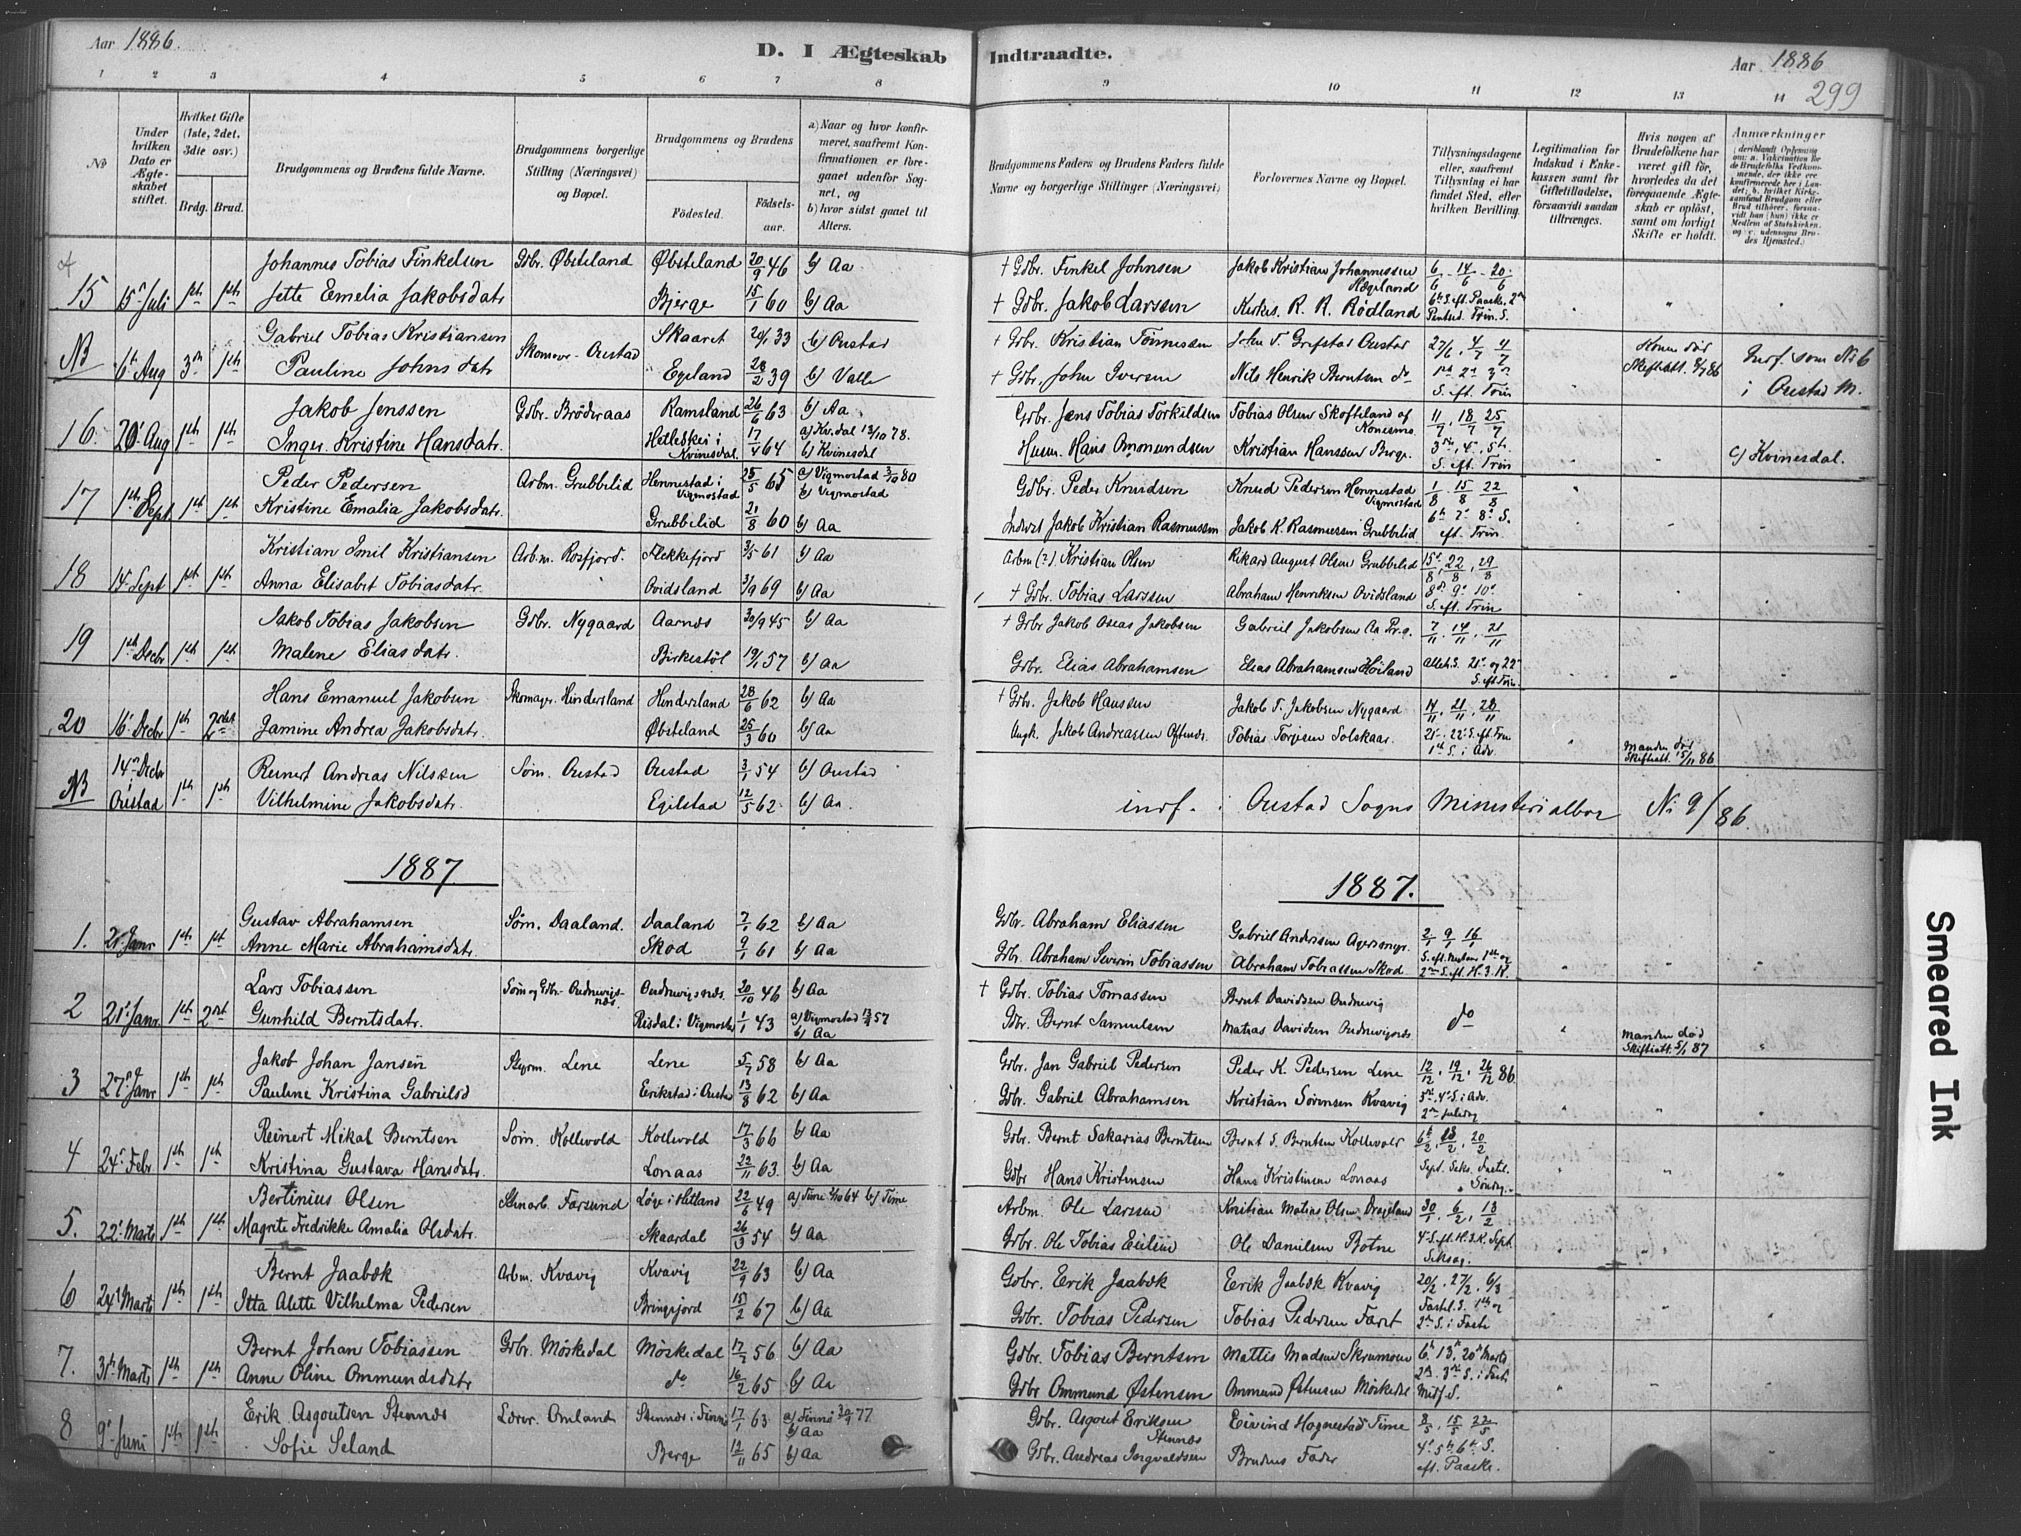 Aar 1886.
D. I Ægteskab Indtraadte.
Aar 1886
299
1 2 3 4 5 6 7 8 9 10 11 12 13 14
No
Under hvilken Dato er Ægteskabet stiftet.
Hvilket Gifte (1ste, 2det, 3die osv.)
Brdg. Brud.
Brudgommens og Brudens fulde Navne.
Brudgommens borgerlige Stilling (Næringsvei) og Bopæl.
Brudgommens og Brudens
Fødested.
Fødselsaar.
a) Naar og hvor konfirmeret, saafremt Konfirmationen er foregaaet udenfor Sognet, og
b) hvor sidst gaaet til Alters.
Brudgommens Faders og Brudens Faders fulde Navne og borgerlige Stillinger (Næringsvei)
Forlovernes Navne og Bopæl.
Tillysningsdagene eller, saafremt Tillysning ei har fundet Sted, efter hvilken Bevilling.
Legitimation for Indskud i Enkekassen samt for Giftetilladelse, forsaavidt saadan tiltrænges.
Hvis nogen af Brudefolkene har været gift før, hvorledes da det foregaaende Ægteskab er opløst, samt om lovligt Skifte er holdt.
Anmærkninger
15 15' Juli 1ste 1ste Johannes Tobias Finkelsen Gdbr. Øbsteland Øbsteland 20/9 46 b) Aa † Gdbr. Finkel Johnsen Jakob Kristian Johannessen Hægeland 6/6 14/6 20/6
Jette Emelia Jakobsdatr Bjerge 15/1 60 b) Aa † Gdbr. Jakob Larssen Kirkes. R. R. Rødland 6te S. eft. Paaske, 2en Pintsed. Trin. S.
NB 6te Aug 3de 1ste Gabriel Tobias Kristiansen Skomager Oustad Skaaret 20/1 33 b) Oustad † Gdbr. Kristian Tønnessen 27/6 4/7 Konen død Indf. som No 6
Pauline Johnsdatr Egeland 28/2 39 b) Valle † Gdbr. John Iversen Nils Henrik Berntsen do S. eft. Trin Skifteatt. i Oustad M.
16. 20' Aug 1ste 1ste Jakob Jenssen Gdbr. Brøderaas Ramsland 26/6 63 b) Aa Gdbr. Jens Tobias Torkildsen Tobias Olsen Skofteland af Konesmo 11/7 18/7 25/7
Inger Kristine Hansdatr. Kvinesdal 17/4 64 a) Kv.dal 13/10 78. b) Kvinesdal Husm. Hans Omundsen Kristian Hanssen Berge. 3die, 4de, 5te S. eft. Trin c) Kvinesdal.
17 1ste Sept 1ste 1ste Peder Pedersen Arbm. Grubbelid Hennestad i Vigmostad 25/5 65 a) Vigmostad 3/10 80 b) Vigmostad Gdbr. Peder Knudsen Knud Pedersen Hennestad Vigmostad 1/8 15/8 22/8
Kristine Emalia Jakobsdatr. Grubbelid 21/8 60 b) Aa Inderst Jakob Kristian Rasmussen Jakob K. Rasmussen Grubbelid 6te 7de 8de S. eft. Trin.
18 15' Sept 1ste 1ste Kristian Emil Kristiansen Arb.m. Rosfjord. Flekkefjord 3/5 61 b) Aa Arbm (?). Kristian Olsen Rikard August Olsen Grubbelid 15/8, 22/8, 29/8
Anna Elisabet Tobiasdatr. Ovidsland 3/9 69 b) Aa † Gdbr. Tobias Larssen Abraham Henriksen Ovidsland 8de 9de 10de S. eft. Trin
19 1ste Decbr 1ste 1ste Jakob Tobias Jakobsen Gdbr. Nygaard Aarnes 30/9 45 b) Aa † Gdbr Jakob Oseas Jakobsen Gabriel Jakobsen Aa Pr.g. 7/11. 14/11. 21/11
Malene Eliasdatr. Birkestøl 19/1 57 b) Aa Gdbr. Elias Abrahamsen Elias Abrahamsen Høiland Alleh.S. 21de og 22de S. eft. Trin.
20 16' Decbr 1ste 2det Hans Emanuel Jakobsen Skomager. Hindersland Hindersland 28/6 62 b) Aa † Gdbr. Jakob Hanssen Jakob T. Jakobsen Nygaard 14/11, 21/11, 28/11
Jamine Andrea Jakobsdatr. Øbsteland 25/3 60 b) Aa Ungk. Jakob Andreassen Oftenes Tobias Torjesen Solskaar. 21de 22de S. eft. Trin 1ste S. i Adv. Manden død Skifteatt. 15/11 86
NB 14' Decbr Oustad 1ste 1ste Reinert Andreas Nilssen Søm. Oustad Oustad 3/1 54 b) Oustad
Vilhelmine Jakobsdatr. Egilstad 12/5 62. b) Aa. indf. i Oustad Sogns Ministerialbog No 9/86.
1887. 1887.
1. 21' Janr 1ste 1ste Gustav Abrahamsen Søm. Daaland. Daaland 7/1 62 b) Aa Gdbr. Abraham Eliassen Gabriel Andersen 2/1 9/1 16/1
Anne Marie Abrahamsdatr. Skod 9/1 61 b) Aa Gdbr. Abraham Severin Tobiassen Abraham Tobiassen Skod 2den S. eft. H.3.K.
2 21' Janr. 1ste 2det Lars Tobiassen Søm og Gdbr. 20/10 46 b) Aa † Gdbr. Tobias Tomassen Bernt Davidsen do
Gunhild Berntsdatr. Risdal i Vigmostad 1/1 43 a) Vigmostad 57 b) Aa Gdbr. Bernt Samuelsen Matias Davidsen Manden død Skifteatt. 5/1 87
3 27' Janr 1ste 1ste Jakob Johan Jansen Styrm. Lene Lene 5/7 58 b) Aa Gdbr. Jan Gabriel Pedersen Peder K. Pedersen Lene 12/12, 19/12, 26/12 86
Pauline Kristina Gabrielsd Eerikstad i Oustad 13/8 62 b) Aa Gdbr. Gabriel Abrahamsen Kristian Sørensen Kvavig 3die 4de S. i Adv. 2den Juledag
4 24' Febr 1ste 1ste Reinert Mikal Berntsen Søm. Kollevold Kollevold 17/3 66 b) Aa Gdbr. Bernt Sakarias Berntsen Bernt S. Berntsen Kollevold 6/2, 13/2, 20/2
Kristina Gustava Hansdatr. Lonaas 22/11 63. b) Aa Gdbr Hans Kristensen Hans Kristensen Lonaas Sept. Seks. Fastel. Søndag.
5. 22' Marts 1ste 1ste Bertinius Olsen Stenarb. Farsund Løge i Hetland 22/6 49 a) Time 2/10 64 b) Time Arbm. Ole Larssen Kristian Matias Olsen Drageland 30/1. 6/2, 13/2
Magrete Fredrikke Amalia Olsdatr. Skaardal 26/3 54 b) Aa Gdbr. Ole Tobias Ole Danielsen Botne 4de S. eft. H.3.K. Sept. Seksag.
6 24' Marts 1ste 1ste Bernt Jaabæk Arbm. Kvavig Kvavig 22/9 63 b) Aa Gdbr. Erik Jaabæk Eerik Jaabæk Kvavig 20/2. 27/2. 6/3
Itta Alette Vilhelma Pedersen Bringsjord 15/2 67 b) Aa Gdbr. Tobias Pedersen Tobias Pedersen Faret Fastel. S. 1ste og 2den S. i Faste
7. 31' Marts 1ste 1ste Bernt Johan Tobiassen Gdbr. Møskedal Møskedal 17/2 56 b) Aa Gdbr. Tobias Berntsen Mattis Madsen 6te 13de 20de Marts
Anne Oline Ommundsdatr do 16/2 65 b) Aa Gdbr Ommund Østensen Ommund Østensen Møskedal 2den 3die S. i Fast. Midf. S.
8 9' Juni 1ste 1ste Erik Asgoutsen Stennes Lærer. Omland Stennes i Finnø 17/1 63 a) Finnø 30/9 77 b) Aa Gdbr. Asgout Eriksen Stennes Eivind Hognestad Time 8/5, 15/5 22/5
Sofie Seland Berge 12/11 65 b) Aa Gdbr. Andreas Ingvaldsen Brudens Fader 4de 5te 6te S. eft. Paaske.
Smeared Ink